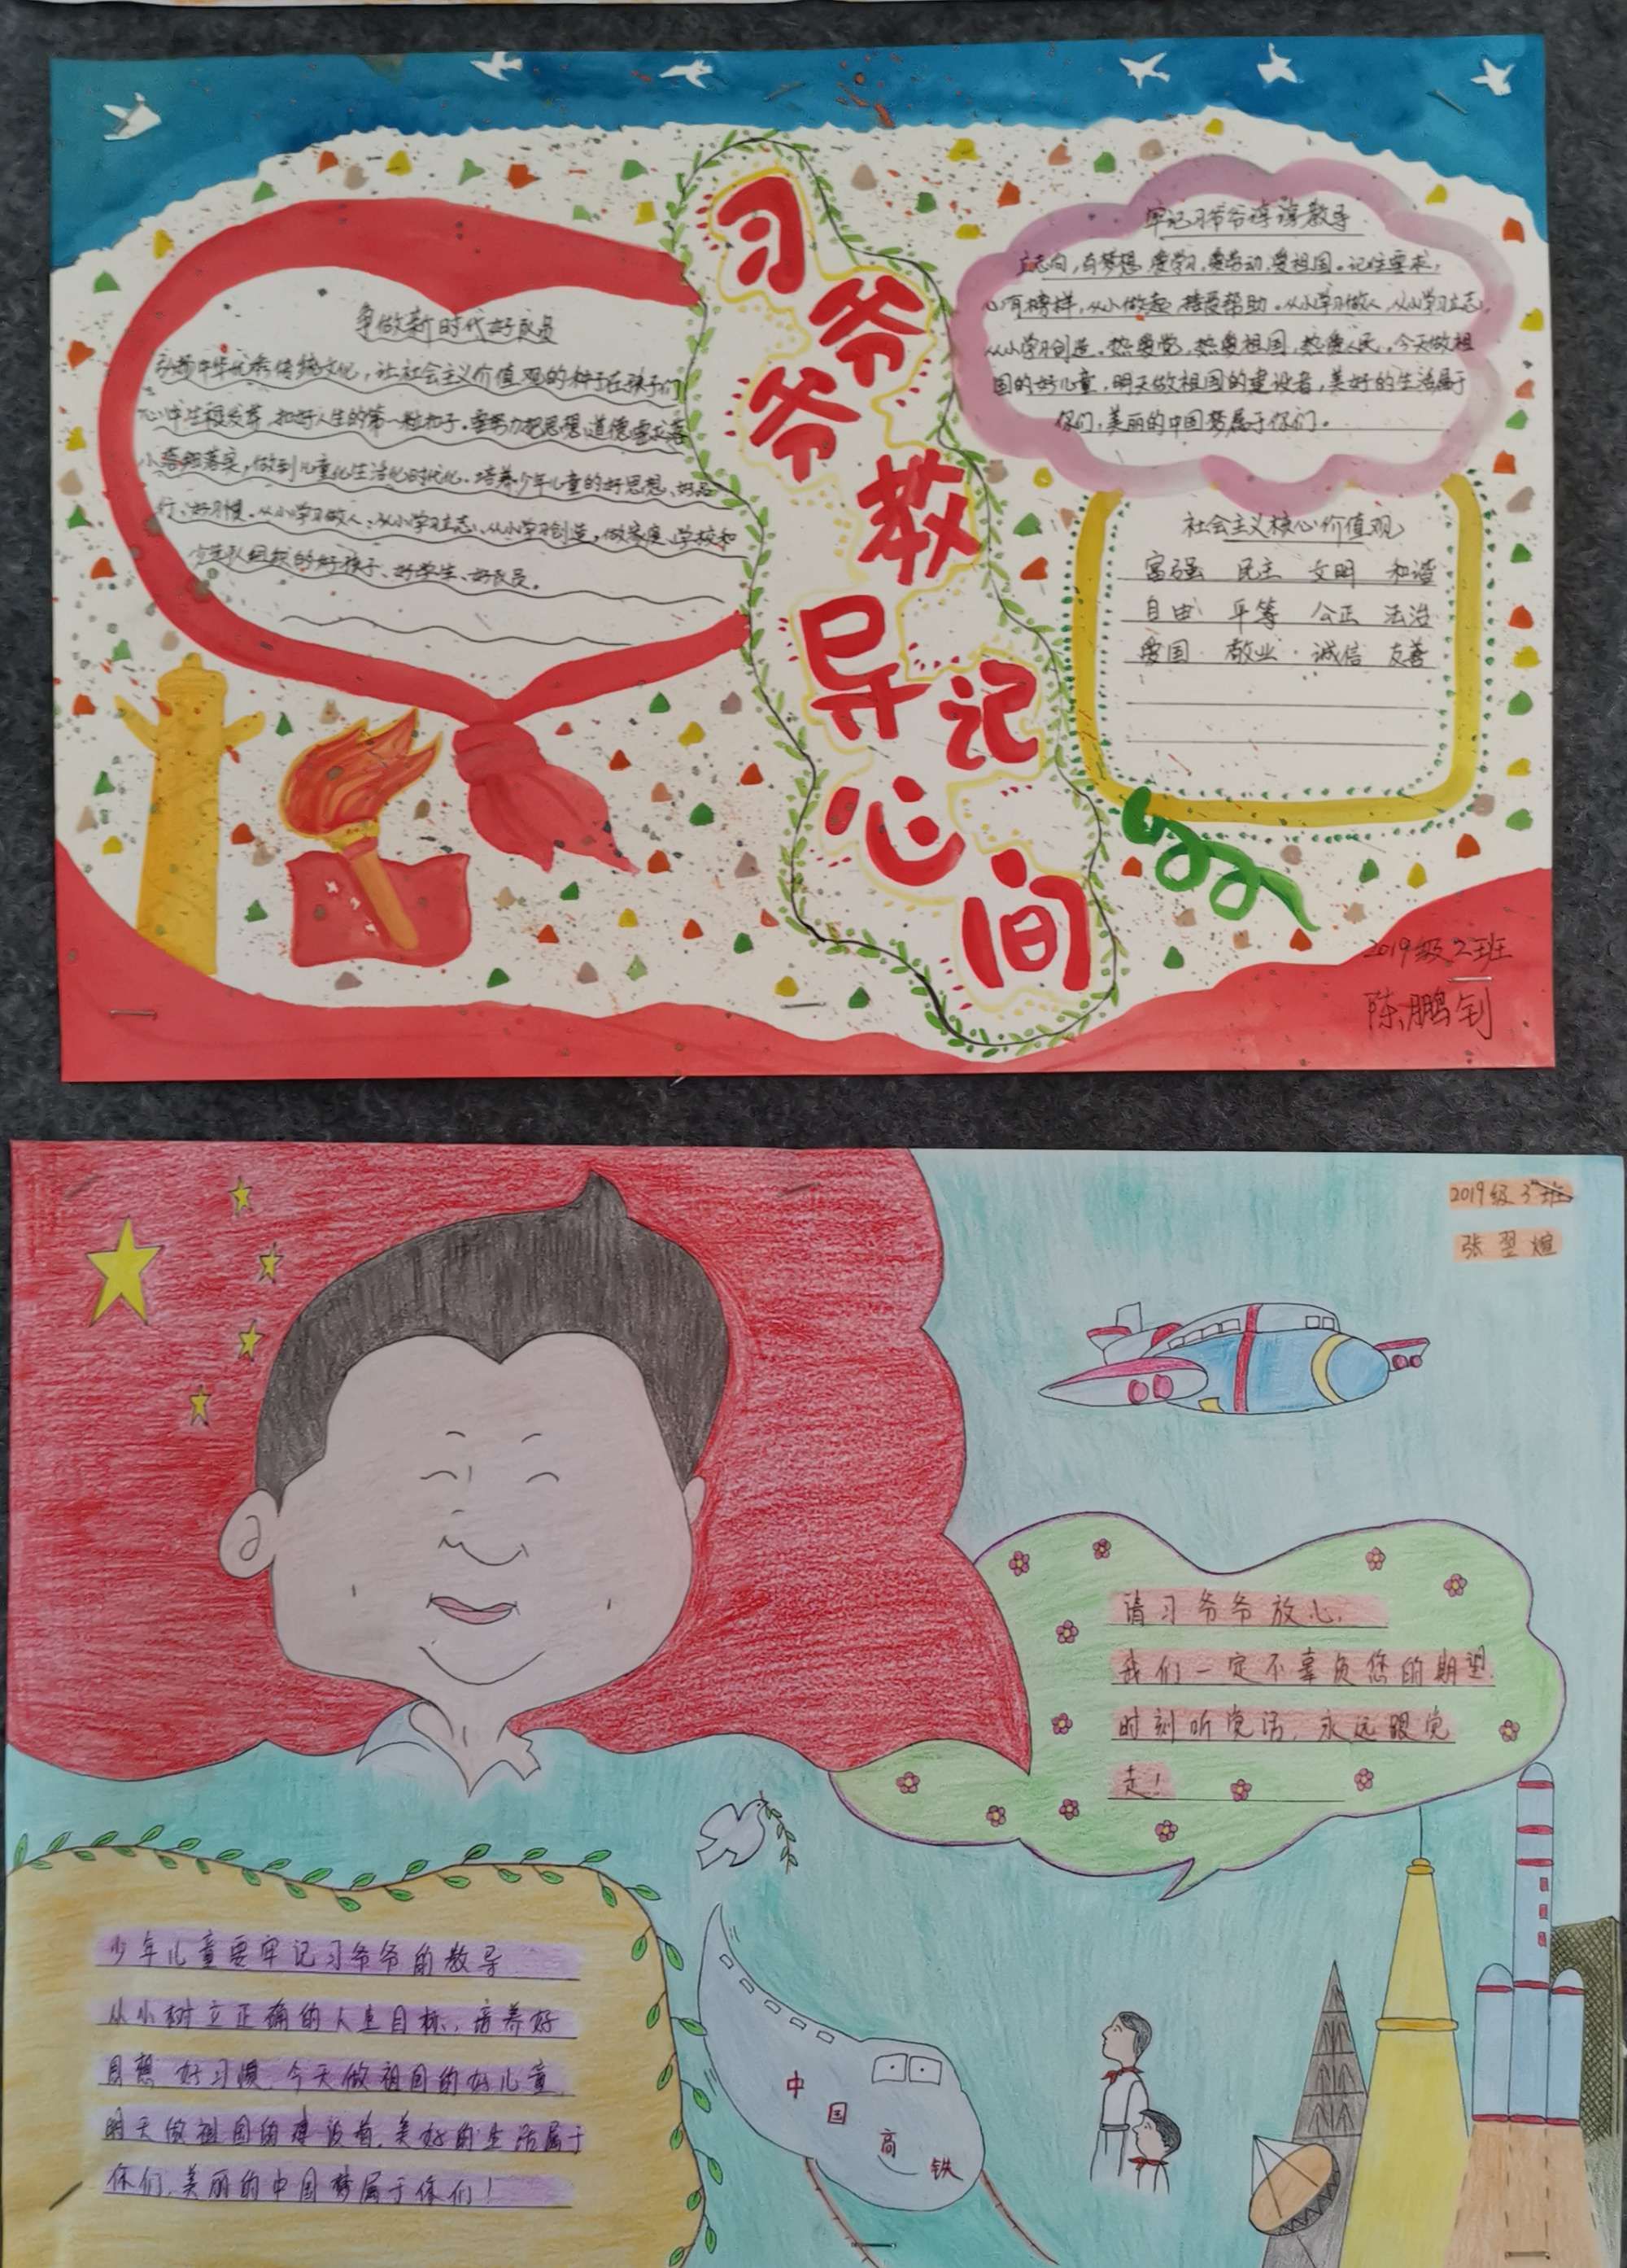 习爷爷教导记心间
争做新时代好队员
弘扬中华优秀传统文化，让社会主义价值观的种子在孩子们
心中生根发芽，扣好人生的第一粒扣子。要努力把思想道德要求落
小落细落实，做到儿童化生活化时代化。培养少年儿童的好思想、好品
行、好习惯。从小学习做人、从小学习立志、从小学习创造，做家庭、学校和
少先队组织的好孩子、好学生、好队员。
牢记习爷爷谆谆教导
立志向，有梦想，爱学习，爱劳动，爱祖国。记住要求，
心有榜样，从小做起，接受帮助。从小学习做人，从小学习立志，
从小学习创造。热爱党，热爱祖国，热爱人民。今天做祖
国的好儿童，明天做祖国的建设者，美好的生活属于
你们，美丽的中国梦属于你们。
社会主义核心价值观
富强 民主 文明 和谐
自由 平等 公正 法治
爱国 敬业 诚信 友善
2019级2班
陈鹏钊
2019级3班
张翌煊
请习爷爷放心，
我们一定不辜负您的期望，
时刻听党话，永远跟党
走！
少年儿童要牢记习爷爷的教导
从小树立正确的人生目标，培养好
思想 好习惯，今天做祖国的好儿童，
明天做祖国的建设者，美好的生活属于
你们，美丽的中国梦属于你们！
中国高铁